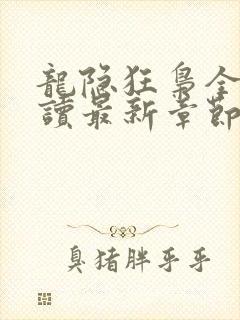 龍隐狂梟全
讀最新章節
臭猪胖乎乎